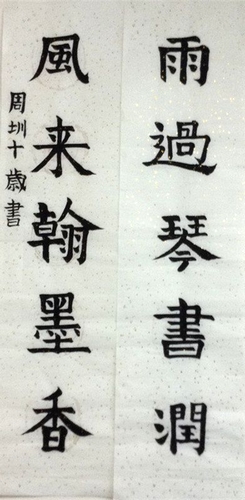 雨過琴書潤
風来翰墨香
周圳十歲書